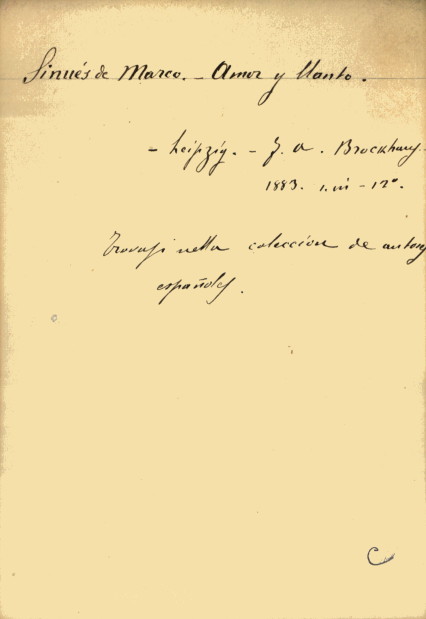 Sinués de Marco. - Amor y llanto.
- Leipzig. - F. A. Brockhaus -
1883. 1. in - 12°.
Trovasi nella coleccion de autores
españoles.
C